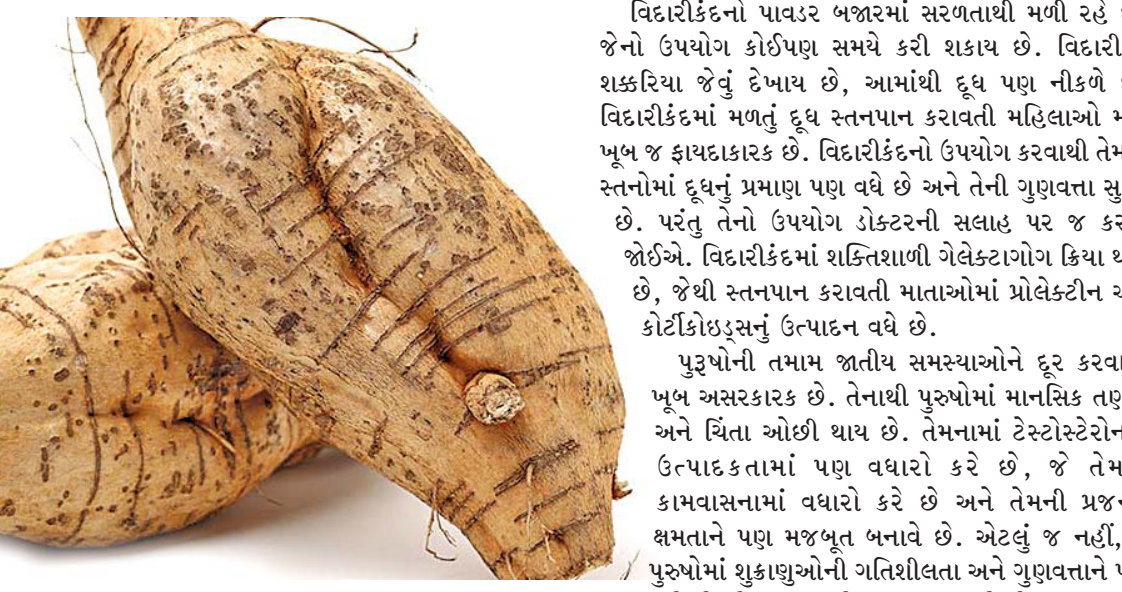 વિદારીકંદનો પાવડર બજારમાં સરળતાથી મળી રહે
જેનો ઉપયોગ કોઈપણ સમયે કરી શકાય છે. વિદારી
શક્કરિયા જેવું દેખાય છે, આમાંથી દૂધ પણ નીકળે
વિદારીકંદમાં મળતું દૂધ સ્તનપાન કરાવતી મહિલાઓ મ
ખૂબ જ ફાયદાકારક છે. વિદારીકંદનો ઉપયોગ કરવાથી તેમ
સ્તનોમાં દૂધનું પ્રમાણ પણ વધે છે અને તેની ગુણવત્તા સુ
છે. પરંતુ તેનો ઉપયોગ ડોક્ટરની સલાહ પર જ કર
જોઈએ. વિદારીકંદમાં શક્તિશાળી ગેલેક્ટાગોગ ક્રિયા થ
છે, જેથી સ્તનપાન કરાવતી માતાઓમાં પ્રોલેક્ટીન
કોર્ટીકોઇડ્સનું ઉત્પાદન વધે છે.
પુરૂષોની તમામ જાતીય સમસ્યાઓને દૂર કરવા
ખૂબ અસરકારક છે. તેનાથી પુરુષોમાં માનસિક તણ
અને ચિંતા ઓછી થાય છે. તેમનામાં ટેસ્ટોસ્ટેરોન
ઉત્પાદકતામાં પણ વધારો કરે છે, જે તેમ
કામવાસનામાં વધારો કરે છે અને તેમની પ્રજન
ક્ષમતાને પણ મજબૂત બનાવે છે. એટલું જ નહીં,
પુરુષોમાં શુક્રાણુઓની ગતિશીલતા અને ગુણવત્તાને પ